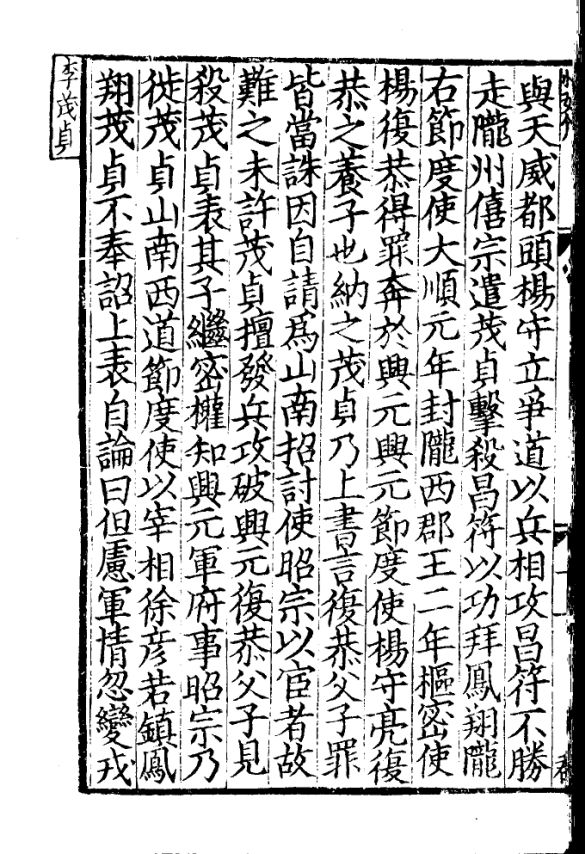 與天威都頭楊守立爭道以兵相攻昌符不勝
走隴州僖宗遣茂貞擊殺昌符以功拜鳳翔隴
右節度使大順元年封隴西郡王二年樞密使
楊復恭得罪奔於興元興元節度使楊守亮復
恭之養子也納之茂貞乃上書言復恭父子罪
皆當誅因自請爲山南招討使昭宗以宦者故
難之未許茂貞擅發兵攻破興元復恭父子見
殺茂貞表其子繼密權知興元軍府事昭宗乃
徙茂貞山南西道節度使以宰相徐彥若鎮鳳
翔茂貞不奉詔上表自論曰但慮軍情忽變戎
李茂貞